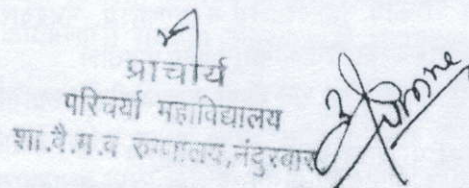 प्राचार्य
परिचर्या महाविद्यालय
शा.वै.म.व रुग्णालय,नंदुरबार